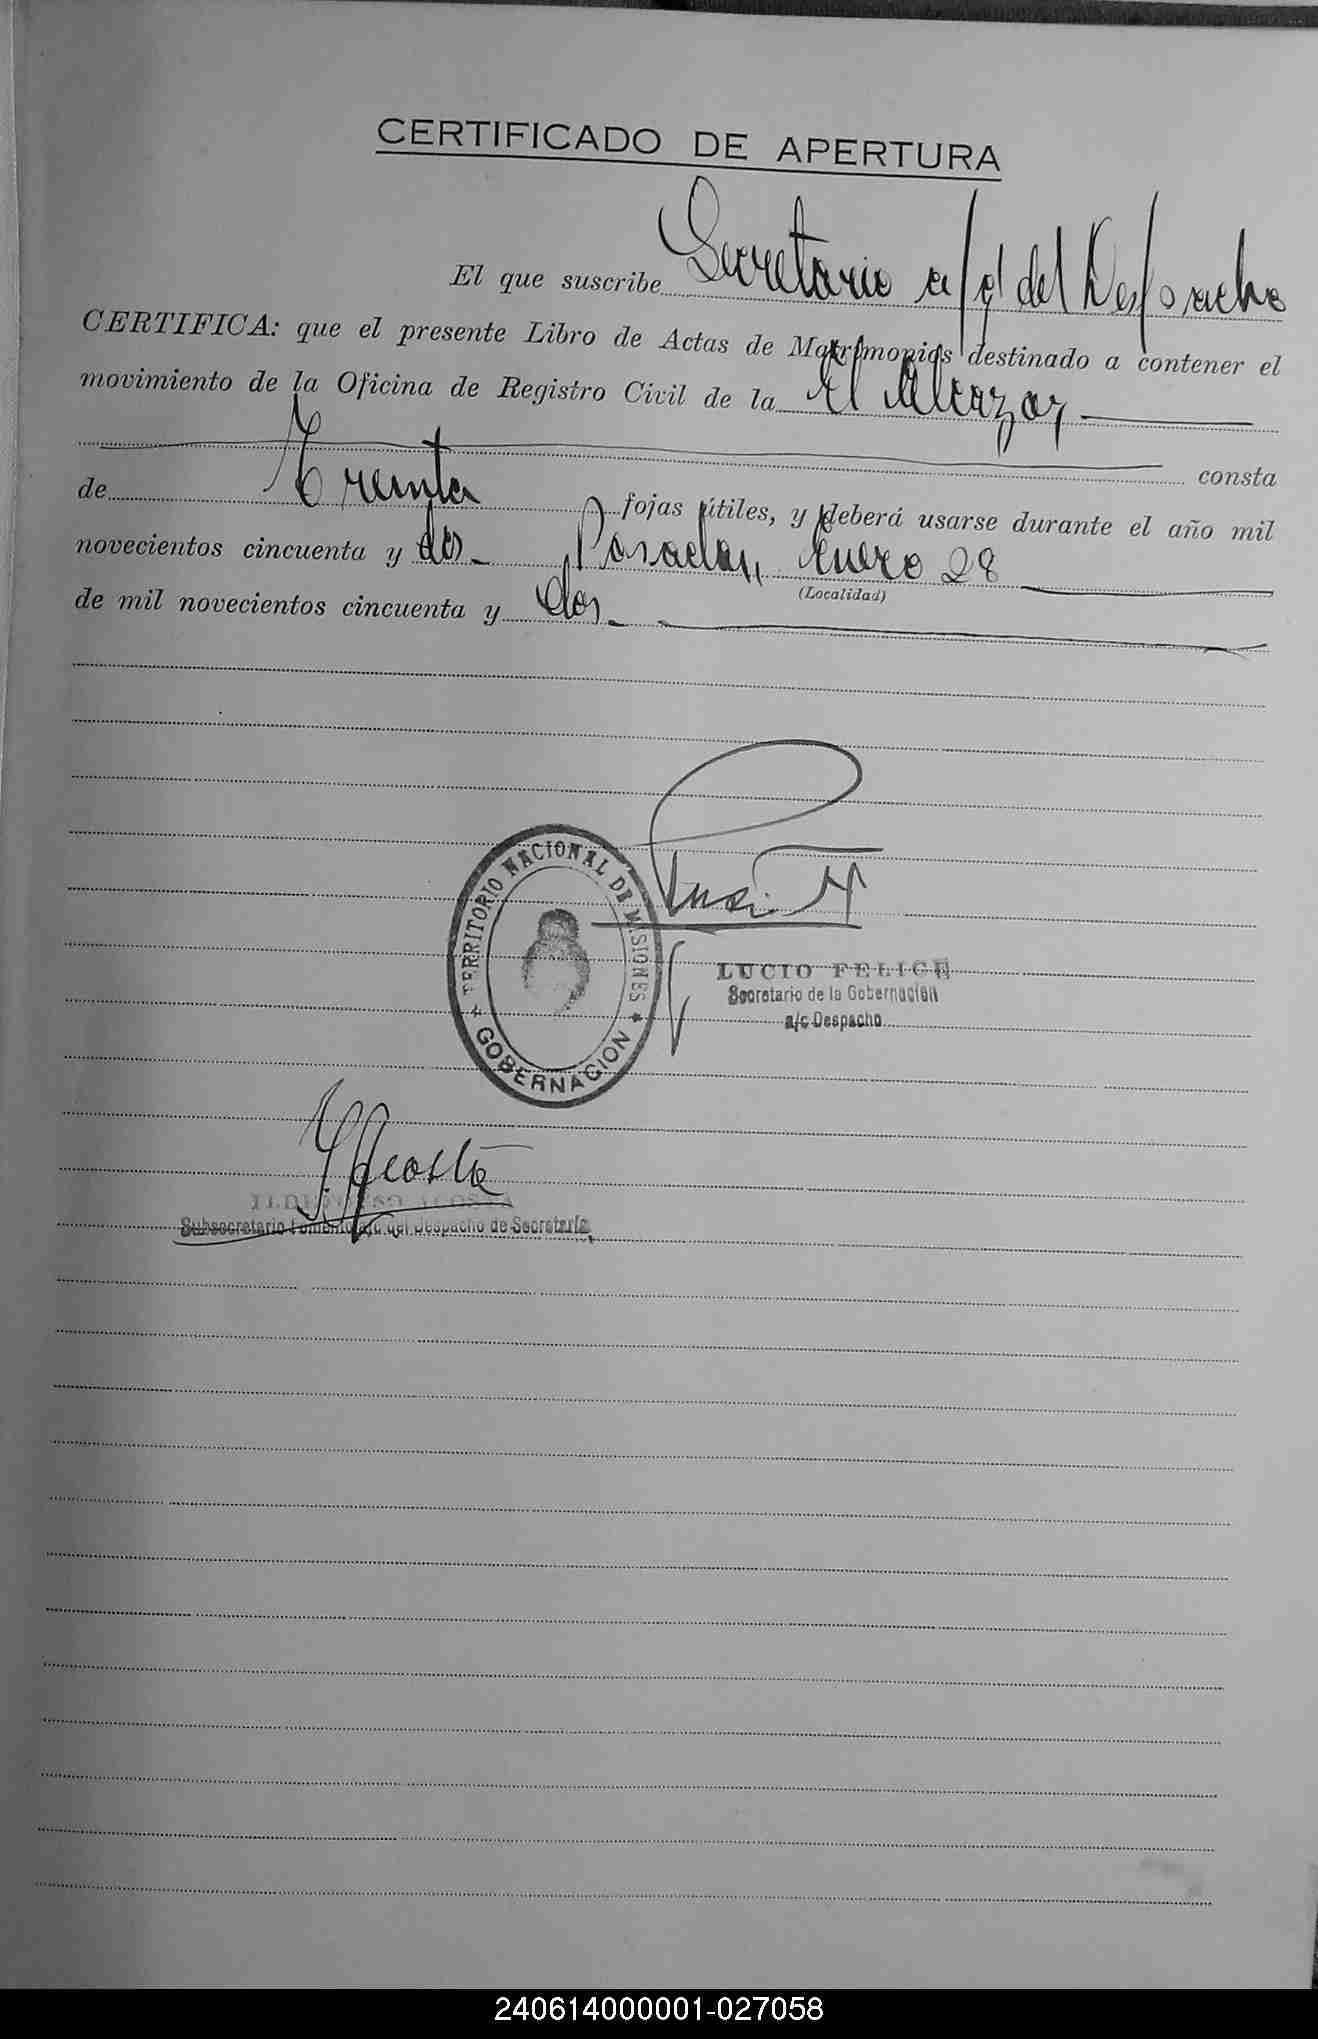 CERTIFICADO DE APERTURA
El que suscribe Secretario a/c del Despacho
CERTIFICA: que el presente Libro de Actas de Matrimonios destinado a contener el
movimiento de la Oficina de Registro Civil de la El Alcazar
consta
de Treinta fojas útiles, y deberá usarse durante el año mil
novecientos cincuenta y dos Posadas, Enero 28
(Localidad)
de mil novecientos cincuenta y dos
TERRITORIO NACIONAL DE MISIONES
GOBERNACION
LUCIO FELICE
Secretario de la Gobernación
a/c Despacho
Acosta
ACOSTA
Subsecretario Fomento a/c del Despacho de Secretaría
240614000001-027058